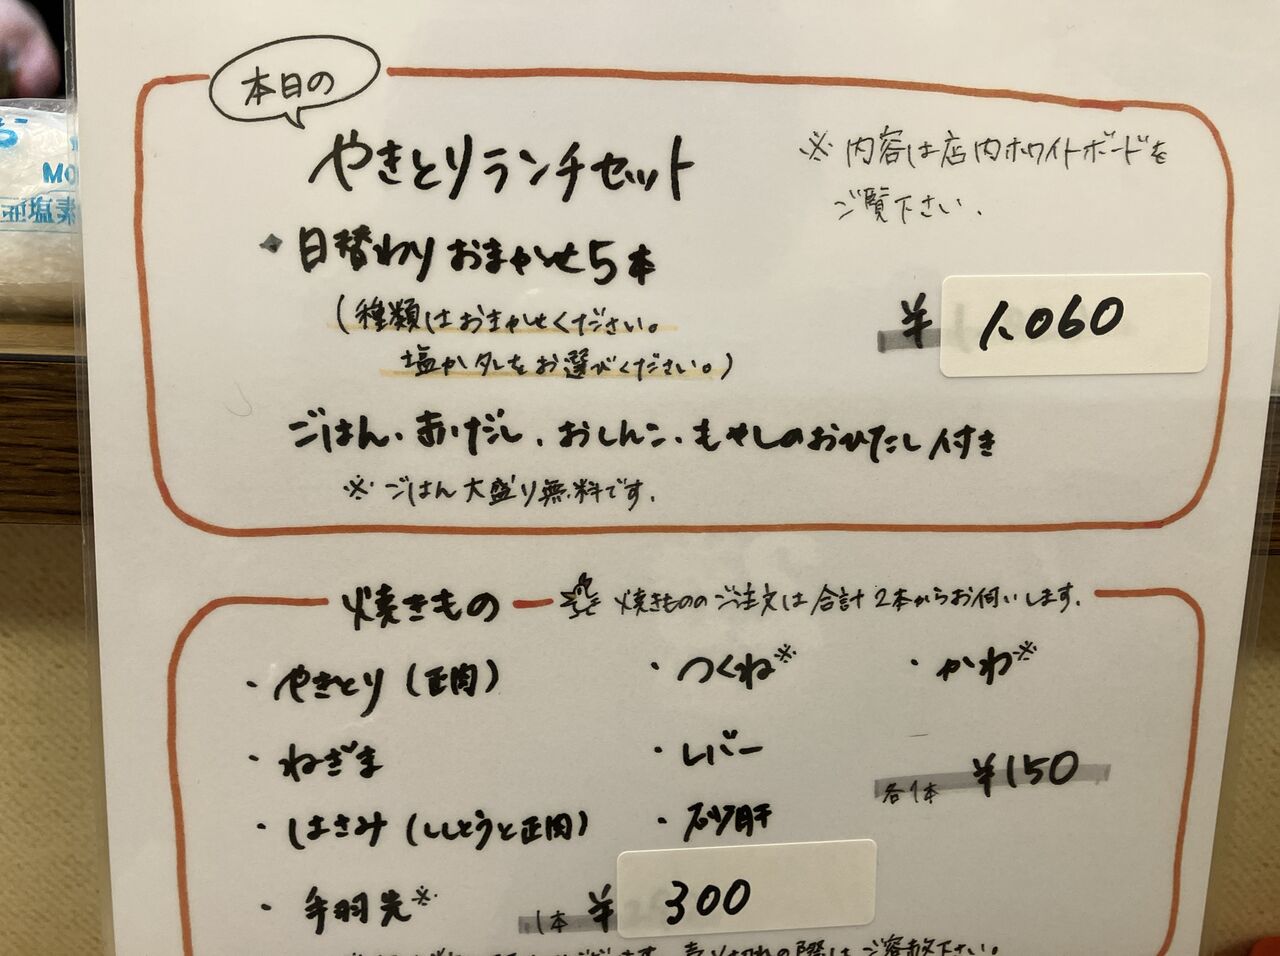 本日の
やきとりランチセット
※内容は店内ホワイトボードを
ご覧下さい。
◆日替わりおまかせ5本
(種類はおまかせください。
塩かタレをお選びください。)
¥1,060
ごはん、赤だし、おしんこ、もやしのおひたし付き
※ごはん大盛り無料です。
焼きもの 焼きもののご注文は合計2本からお伺いします。
・やきとり(正肉) ・つくね※ ・かわ※
・ねぎま ・レバー
各1本 ¥150
・はさみ(ししとうと正肉) ・砂肝
・手羽先※ 1本 ¥300
売り切れの際はご容赦下さい。